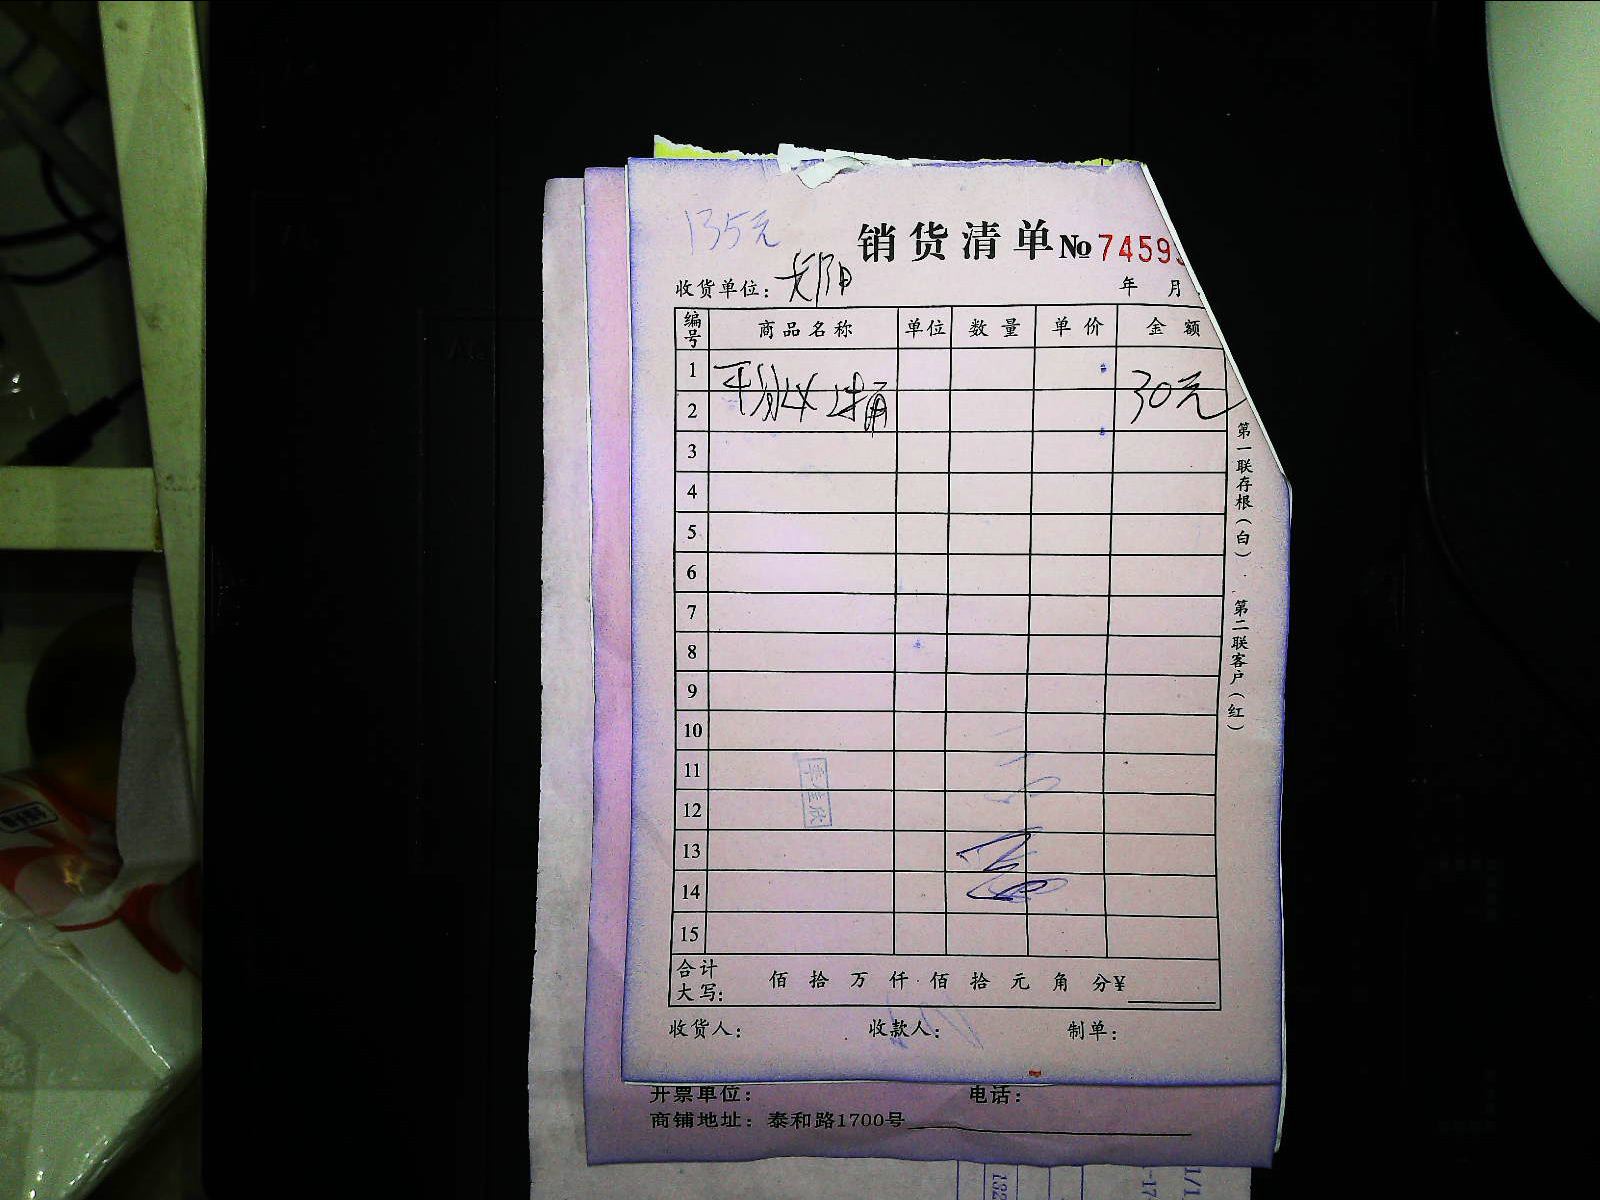 135元
销货清单 № 7459
收货单位:
年 月
编号 商品名称 单位 数量 单价 金额
1
30元
2
3
4
5
6
7
8
9
10
11
12
13
14
15
合计
大写: 佰 拾 万 仟 佰 拾 元 角 分¥
收货人: 收款人: 制单:
第一联存根(白)
第二联客户(红)
开票单位: 电话:
商铺地址: 泰和路1700号